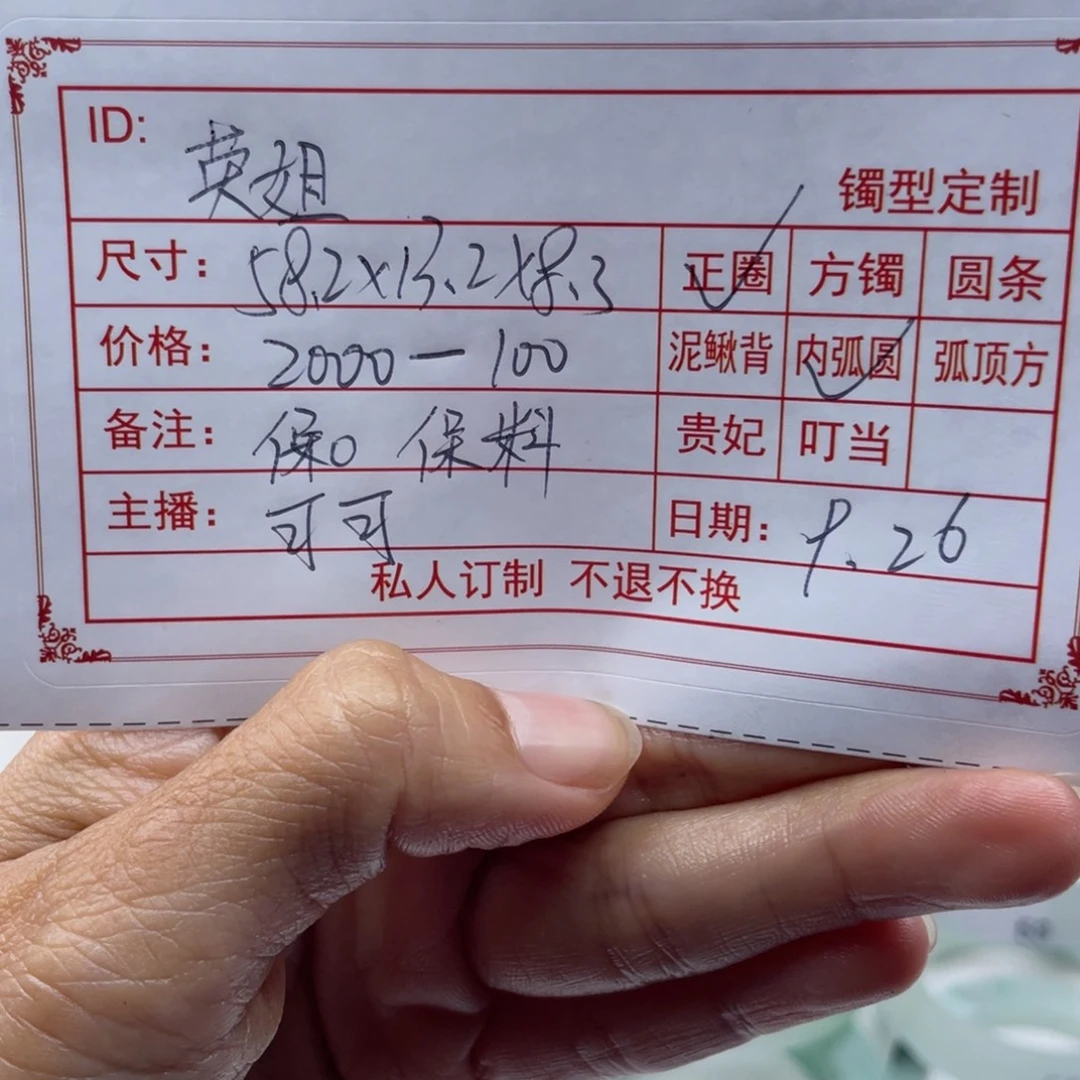 ID: 英姐
镯型定制
尺寸: 58.2×13.2×8.3 正圈 方镯 圆条
价格: 2000-100 泥鳅背 内弧圆 弧顶方
备注: 保0 保料 贵妃 叮当
主播: 可可 日期: 9.26
私人订制 不退不换